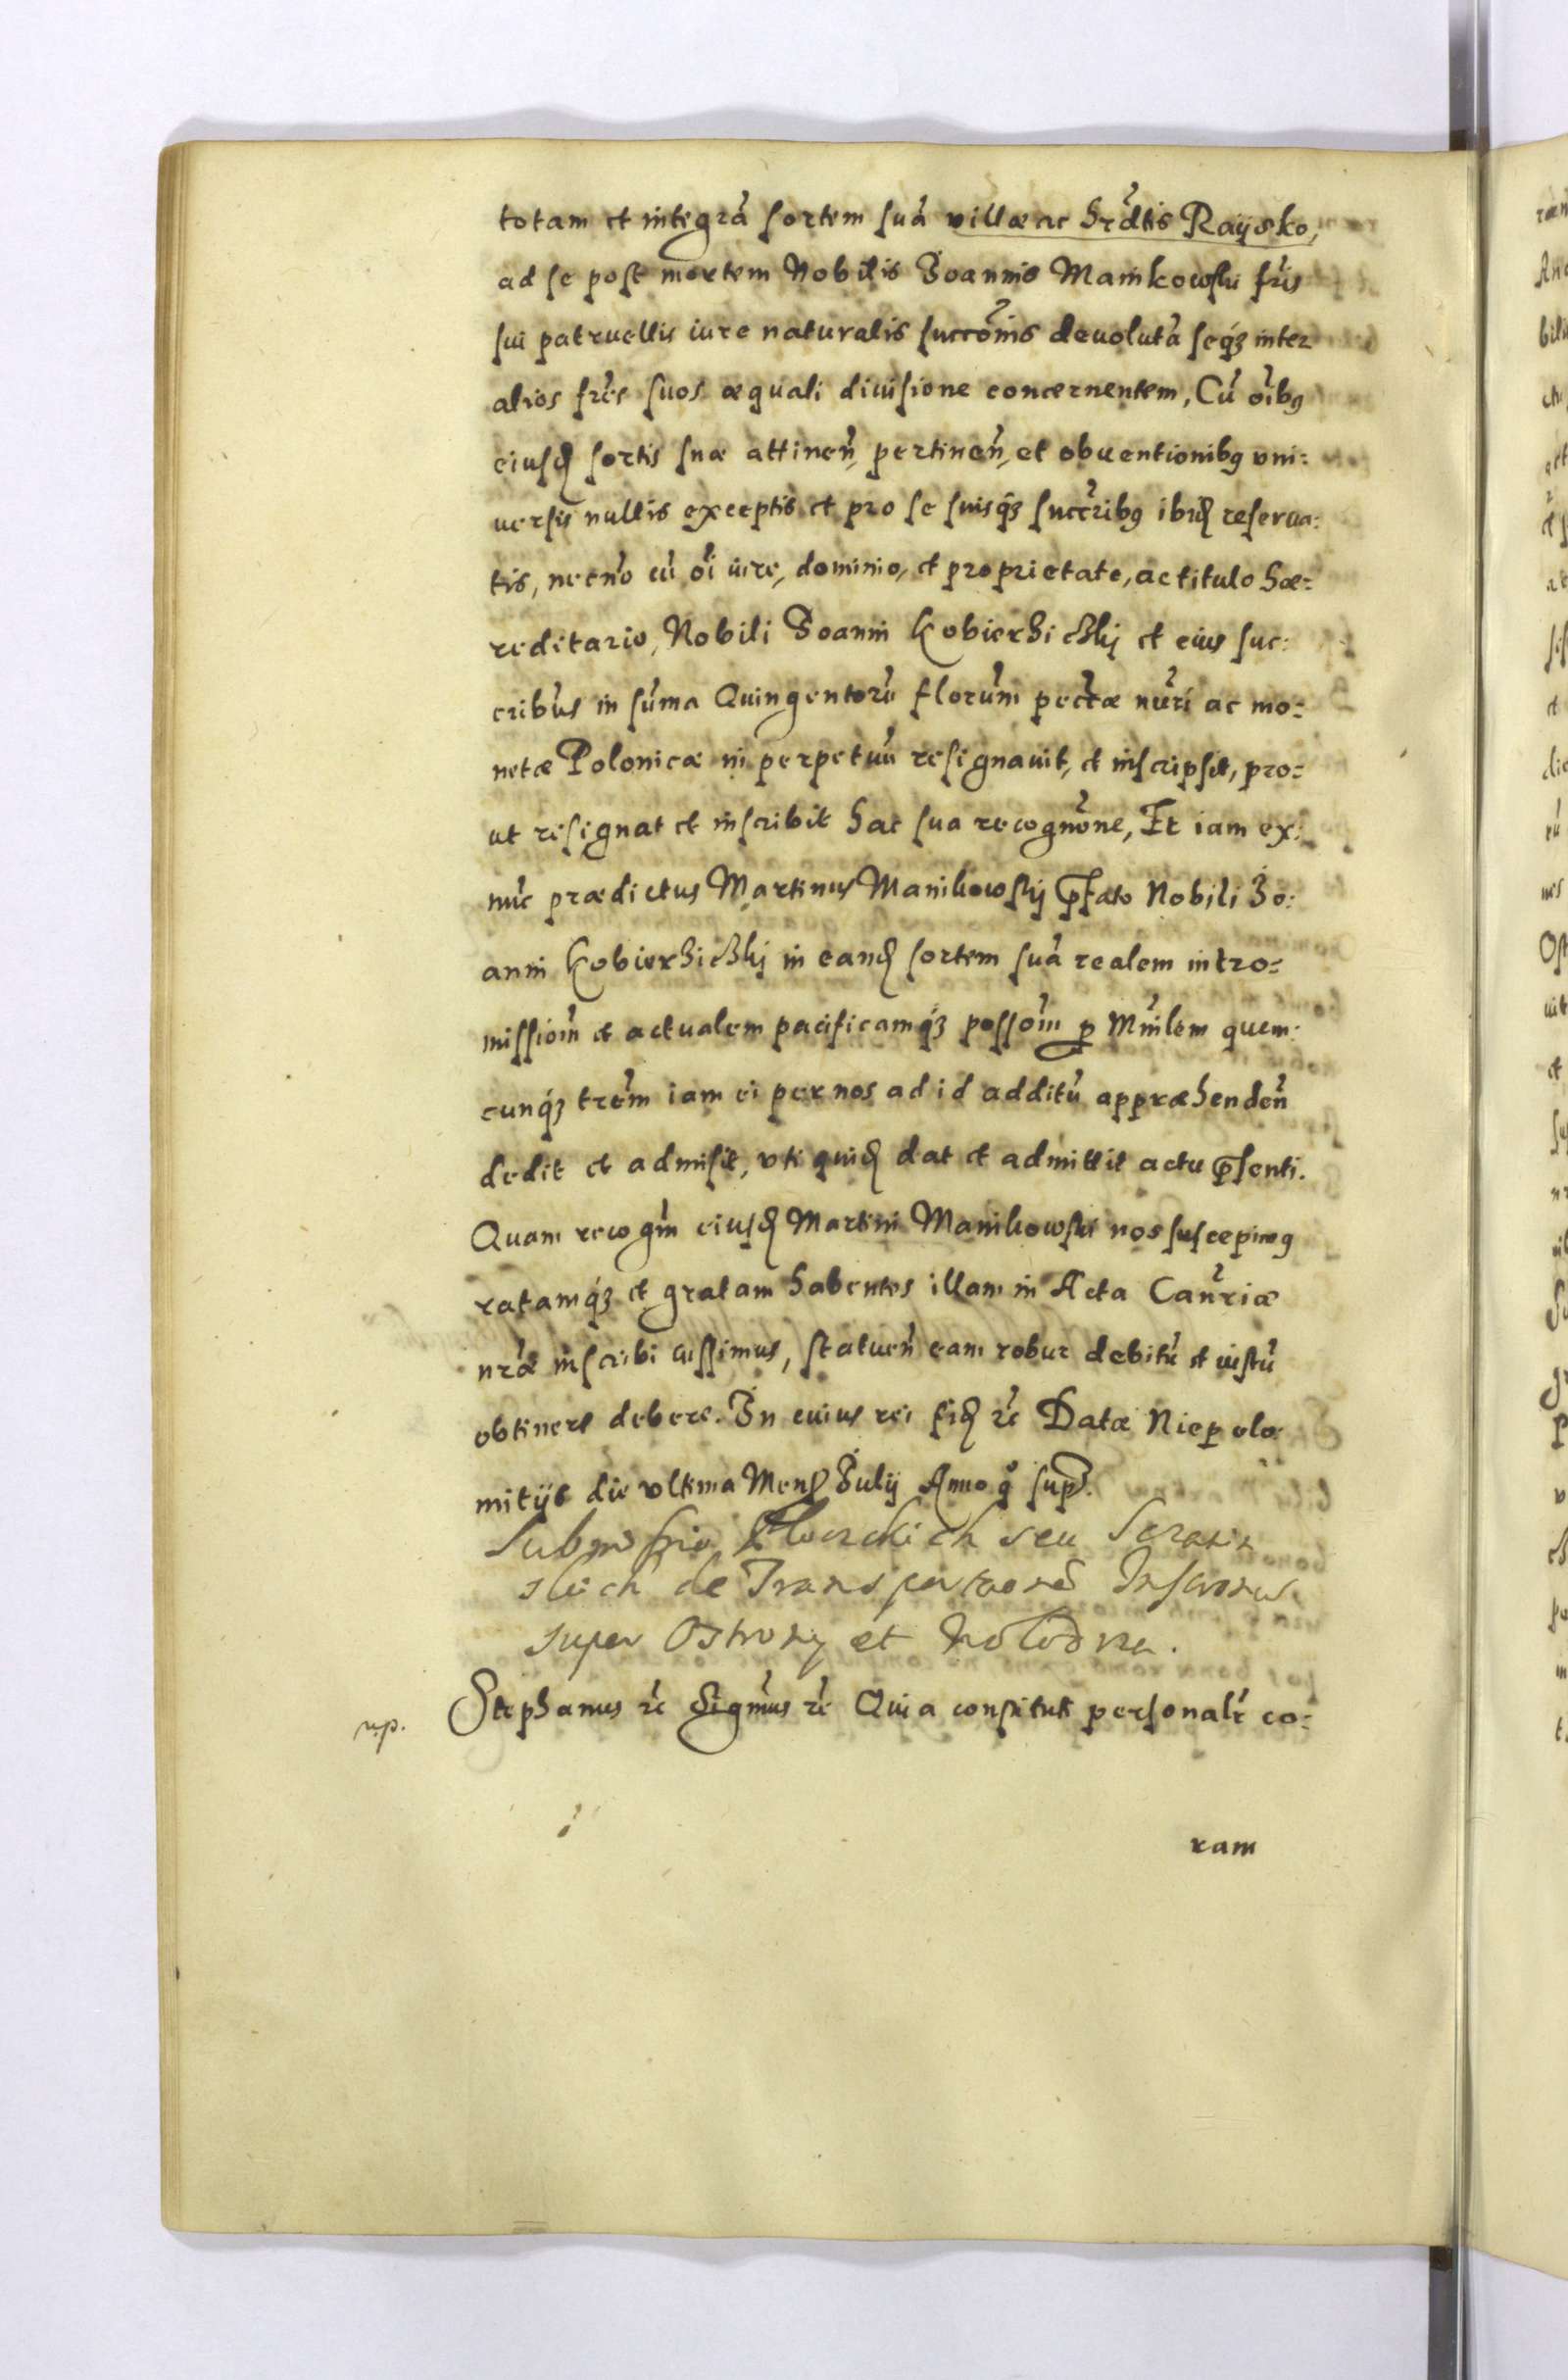 totam et integrā sortem suā villæ ac hrdtis Raysko,
ad se post mortem Nobilis Joannis Mankowski fris
sui patruellis iure naturalis succōnis devolutā seqз inter
alios frēs suos æquali divisione concernentem, Cū oībꝯ
eiusꝗ sortis suæ attinen̄, pertinen̄, et obventionibꝯ uni:
versis nullis exceptis et pro se suisqз succribꝯ ibiꝗ reserva:
tis, necnō cū oī iure, dominio, et proprietate, ac titulo hæ:
reditario, Nobili Joanni Kobierziczkj et eius suc:
cribus in sūma Quingentorū florūm pecctæ nūri ac mo:
netæ Polonicæ in perpetuū resignavit, et inscripsit, pro:
ut resignat et inscribit hac sua recognōne, Et iam ex:
nūc prædictus Martinus Manikowskij ꝓfato Nobili Jo:
anni Kobierziczkj in eanꝗ sortem suā realem intro:
missiom̄ et actualem pacificamqз possom̄ ꝑ Mnīlem quem:
cunqз trēm iam ei per nos ad id additū appræhenden̄
dedit et admisit, uti quiꝗ dat et admittit actu ꝓsenti.
Quam recogm̄ eiusꝗ Martini Manikowski nos suscepimꝯ
ratamqз et gratam habentes illam in Acta Canr̄iæ
nræ inscribi iussimus, statuen̄ eam robur debitū et iustū
obtinere debere. In cuius rei fiꝗ rc̄ Datæ Niepolo:
mitijs die ultima Mens Julij Anno qº sup.
super Ostrony et
Stephanus rc̄ Sigmūs rc̄ Quia constituti personalr̄ co:
ram